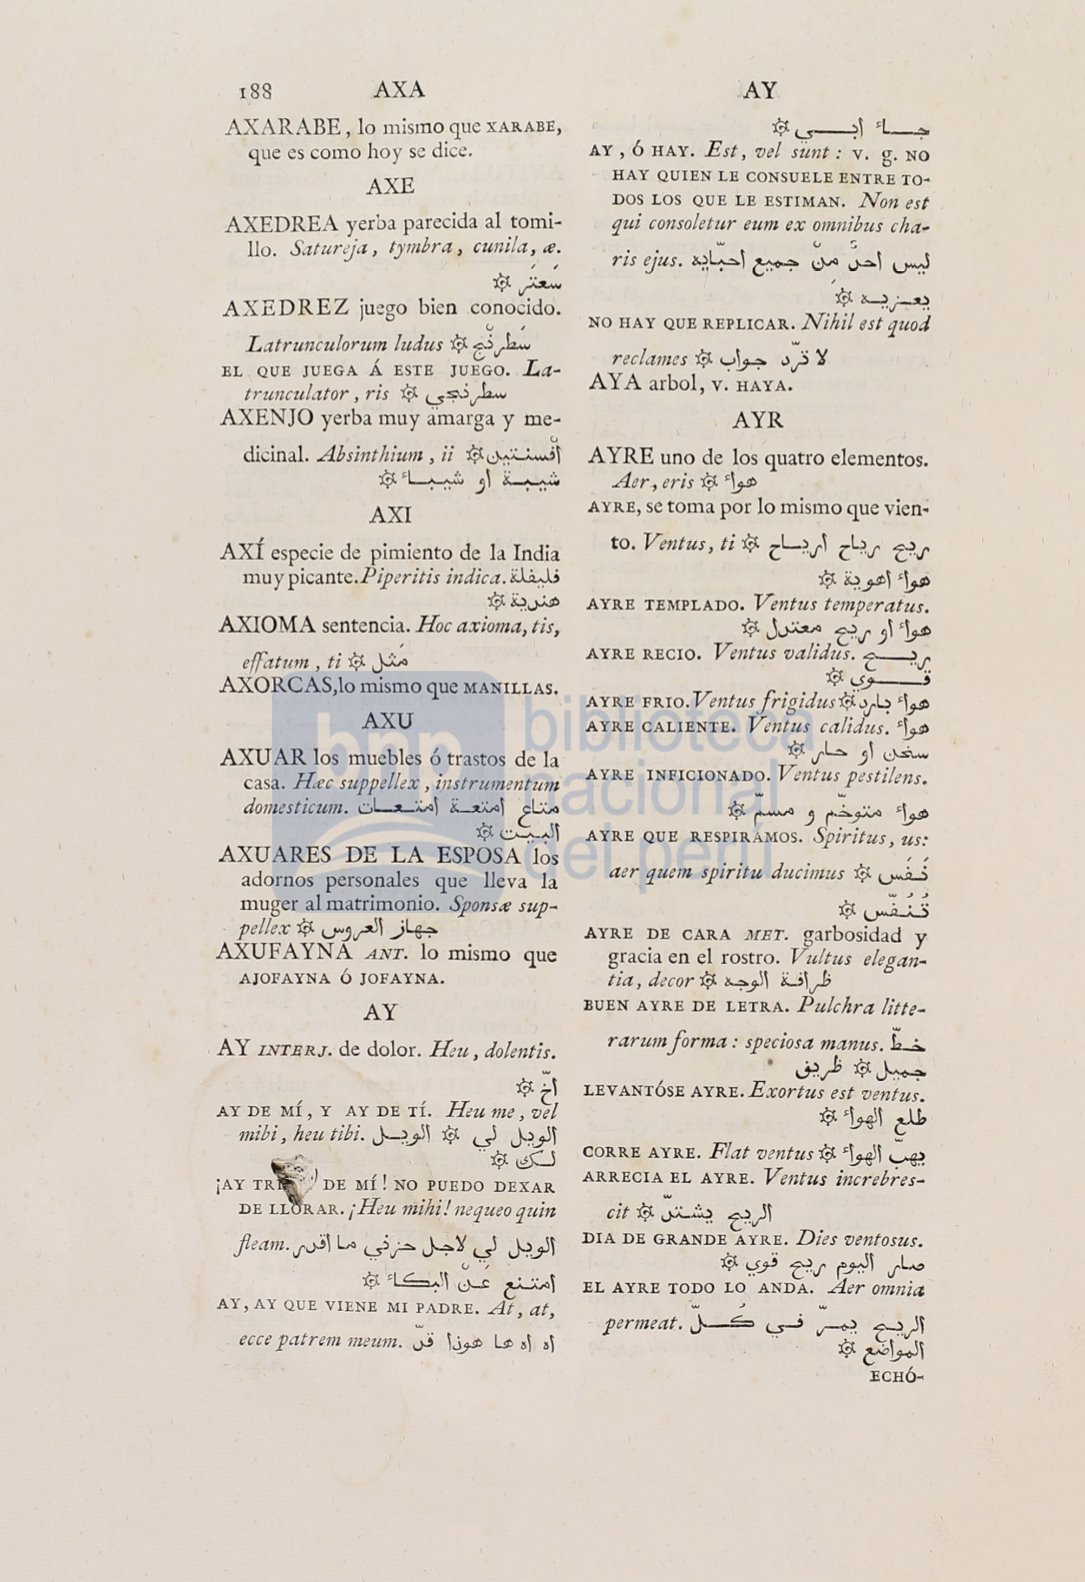 188 AXA
AXARABE, lo mismo que XARABE,
que es como hoy se dice.
AXE
AXEDREA yerba parecida al tomi-
llo. Satureja, tymbra, cunila, æ.
سَعتَر ۞
AXEDREZ juego bien conocido.
Latrunculorum ludus ۞ سَطرنْج
EL QUE JUEGA Á ESTE JUEGO. La-
trunculator, ris ۞ سطرنجي
AXENJO yerba muy amarga y me-
dicinal. Absinthium, ii ۞ افْسنتين
شيبة او شيباء ۞
AXI
AXÍ especie de pimiento de la India
muy picante. Piperitis indica. فليفلة
هندية ۞
AXIOMA sentencia. Hoc axioma, tis,
effatum, ti ۞ مَثل
AXORCAS, lo mismo que MANILLAS.
AXU
AXUAR los muebles ó trastos de la
casa. Hæc suppellex, instrumentum
domesticum. متاع امتعة امتعات
البيت ۞
AXUARES DE LA ESPOSA los
adornos personales que lleva la
muger al matrimonio. Sponsæ sup-
pellex ۞ جهاز العروس
AXUFAYNA ANT. lo mismo que
AJOFAYNA Ó JOFAYNA.
AY
AY INTERJ. de dolor. Heu, dolentis.
اخّ ۞
AY DE MÍ, Y AY DE TÍ. Heu me, vel
mihi, heu tibi. الويل لي ۞ الويل
لك ۞
¡AY DE MÍ! NO PUEDO DEXAR
DE LLORAR. ¡Heu mihi! nequeo quin
fleam. الويل لي لاجل حزني ما اقدر
امتنع عَنْ البكاء ۞
AY, AY QUE VIENE MI PADRE. At, at,
ecce patrem meum. اه اه ها هوذا قدّ
AY
جاء ابي ۞
AY, Ó HAY. Est, vel sunt: v. g. NO
HAY QUIEN LE CONSUELE ENTRE TO-
DOS LOS QUE LE ESTIMAN. Non est
qui consoletur eum ex omnibus cha-
ris ejus. ليس احدٌ مِنْ جميع احبّايه
يعزيه ۞
NO HAY QUE REPLICAR. Nihil est quod
reclames ۞ لا ترّد جواب
AYA arbol, v. HAYA.
AYR
AYRE uno de los quatro elementos.
Aer, eris ۞ هواء
AYRE, se toma por lo mismo que vien-
to. Ventus, ti ۞ ريح رياح ارياح
هواء اهوية ۞
AYRE TEMPLADO. Ventus temperatus.
هواء او ريح معتدل ۞
AYRE RECIO. Ventus validus. ريح
قوي ۞
AYRE FRIO. Ventus frigidus ۞ هواء بارد
AYRE CALIENTE. Ventus calidus. هواء
سخن او حار ۞
AYRE INFICIONADO. Ventus pestilens.
هواء متوخّم و مسمّ ۞
AYRE QUE RESPIRAMOS. Spiritus, us:
aer quem spiritu ducimus ۞ نَفَس
تُنُفّس ۞
AYRE DE CARA MET. garbosidad y
gracia en el rostro. Vultus elegan-
tia, decor ۞ ظرافة الوجه
BUEN AYRE DE LETRA. Pulchra litte-
rarum forma: speciosa manus. خطّ
جميل ۞ ظريف
LEVANTÓSE AYRE. Exortus est ventus.
طلع الهواء ۞
CORRE AYRE. Flat ventus ۞ يهبّ الهواء
ARRECIA EL AYRE. Ventus increbres-
cit ۞ الريح يشتدّ
DIA DE GRANDE AYRE. Dies ventosus.
صار اليوم ريح قوي ۞
EL AYRE TODO LO ANDA. Aer omnia
permeat. الريح يمرّ في كُلّ
المواضع ۞
ECHÓ-
bnp
biblioteca
nacional
del perú